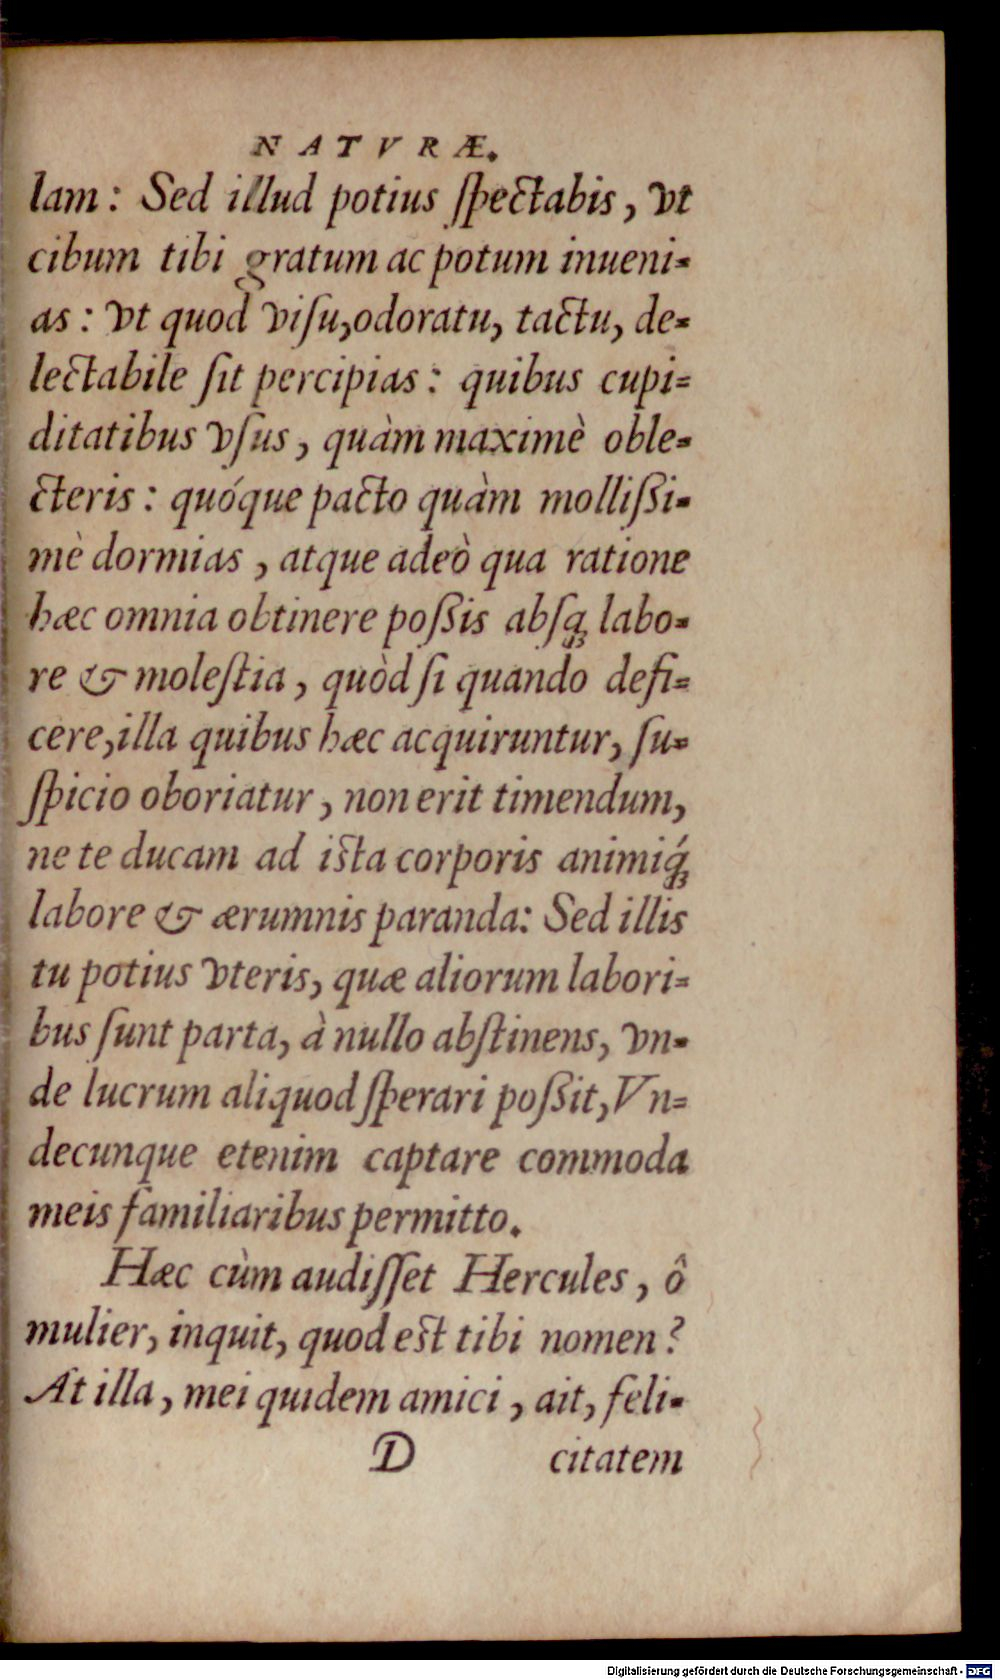 NATVRÆ.
lam: Sed illud potius ſpectabis, vt
cibum tibi gratum ac potum inueni-
as: vt quod viſu, odoratu, tactu, de-
lectabile ſit percipias: quibus cupi-
ditatibus vſus, quàm maximè oble-
cteris: quóque pacto quàm mollißi-
mè dormias, atque adeò qua ratione
hæc omnia obtinere poßis abſq; labo-
re & moleſtia, quòd ſi quando defi-
cere, illa quibus hæc acquiruntur, ſu-
ſpicio oboriatur, non erit timendum,
ne te ducam ad iſta corporis animiq́;
labore & ærumnis paranda: Sed illis
tu potius vteris, quæ aliorum labori-
bus ſunt parta, à nullo abſtinens, vn-
de lucrum aliquod ſperari poßit, Vn-
decunque etenim captare commoda
meis familiaribus permitto.
Hæc cùm audiſſet Hercules, ô
mulier, inquit, quod eſt tibi nomen?
At illa, mei quidem amici, ait, feli-
D citatem
Digitalisierung gefördert durch die Deutsche Forschungsgemeinschaft - DFG